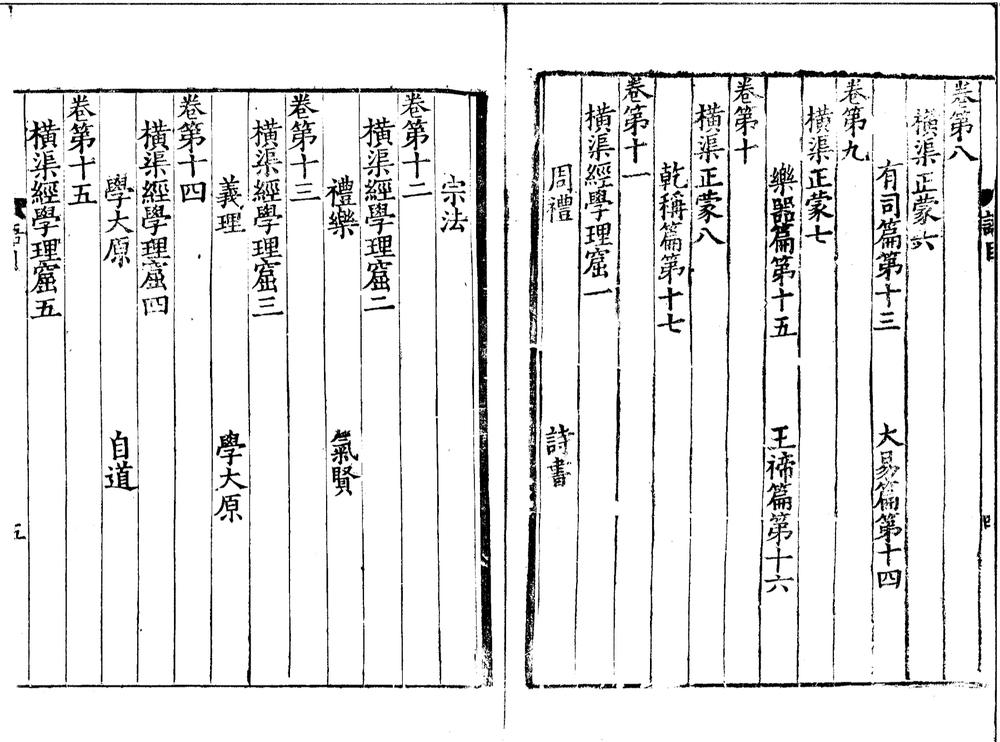 卷第八
橫渠正蒙六
有司篇第十三 大易篇第十四
卷第九
橫渠正蒙七
樂器篇第十五 王禘篇第十六
卷第十
橫渠正蒙八
乾稱篇第十七
卷第十一
橫渠經學理窟一
周禮 詩書
宗法
卷第十二
橫渠經學理窟二
禮樂 氣質
卷第十三
橫渠經學理窟三
義理 學大原
卷第十四
橫渠經學理窟四
學大原 自道
卷第十五
橫渠經學理窟五
五